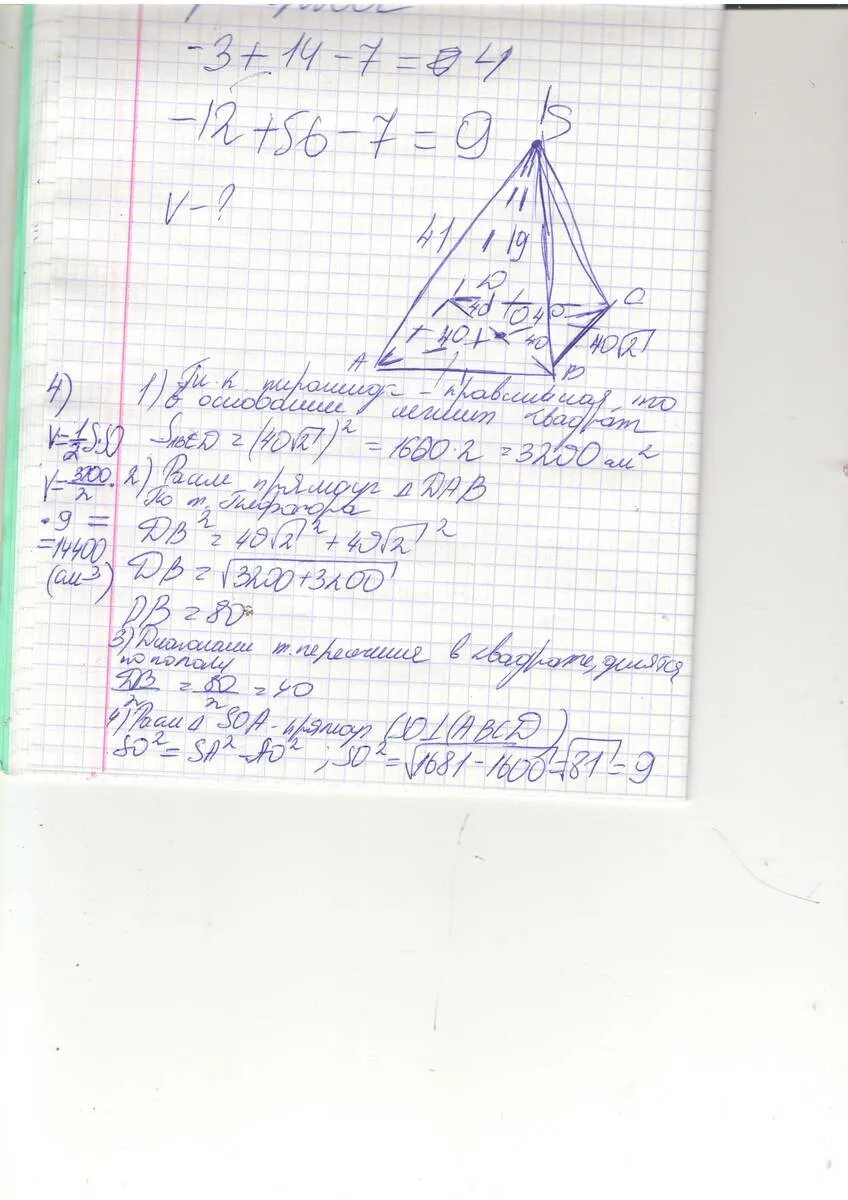 -3 + 14 - 7 = 4
-12 + 56 - 7 = 9
V - ?
S
41
9
D
C
40
O
40
40
40
40√2
A
B
4)
1) Т.к. пирамида - правильная то
в основании лежит квадрат
V = 1/2 S·SO
S ABCD = (40√2)² = 1600·2 = 3200 см²
V = 3200/2 ·
· 9 =
= 14400
(см³)
2) Рассм прямоуг Δ DAB
По т. Пифагора
DB² = 40√2² + 40√2²
DB = √3200+3200
DB = 80
3) Диагонали т. пересечние в квадрате, делятся
по полам
DB/2 = 80/2 = 40
4) Рассм Δ SOA - прямоуг (SO ⊥ (ABCD)
SO² = SA² - AO² ; SO² = √1681 - 1600 = √81 = 9